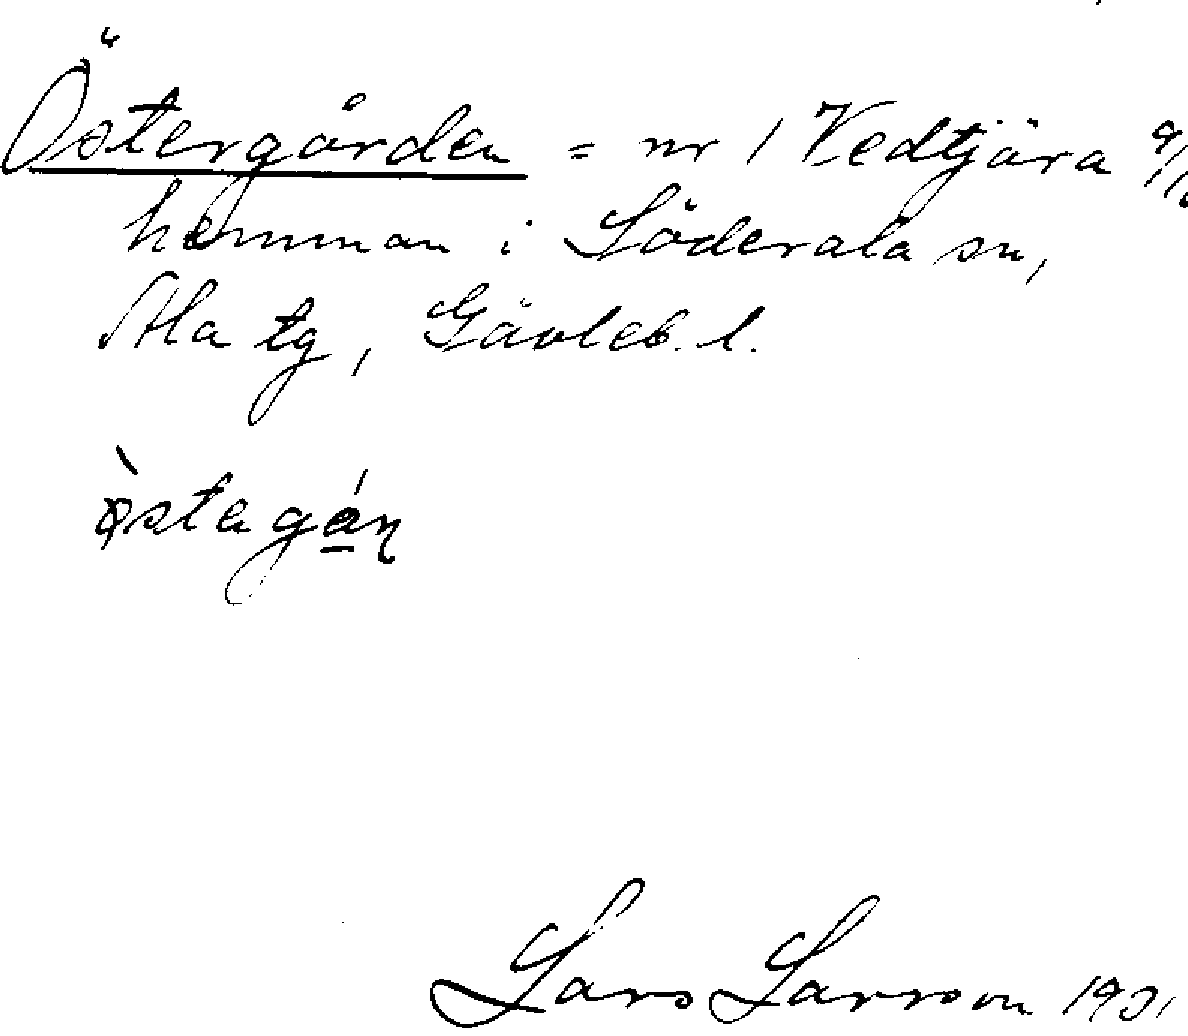 Östergården = nr 1 Vedtjära
hemman i Söderala sn,
Ala tg, Gävleb. l.
Lars Larsson 1931